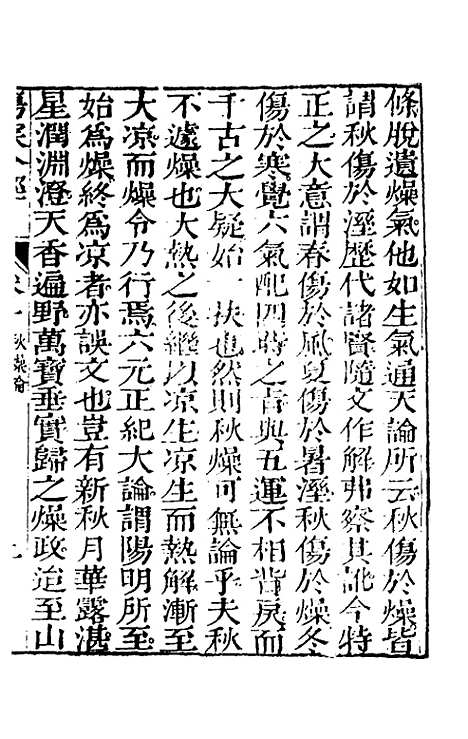 條脫遺燥氣他如生氣通天論所云秋傷於燥皆
謂秋傷於溼歷代諸賢隨文作解弗察其訛今特
正之大意謂春傷於風夏傷於暑溼秋傷於燥冬
傷於寒覺六氣配四時之旨與五運不相背戾而
千古之大疑始一抉也然則秋燥可無論乎夫秋
不遽燥也大熱之後繼以凉生凉生而熱解漸至
大凉而燥令乃行焉六元正紀大論謂陽明所至
始爲燥終爲凉者亦誤文也豈有新秋月華露湛
星潤淵澄天香遍野萬寶垂實歸之燥政迨至山
卷一 秋燥論 九